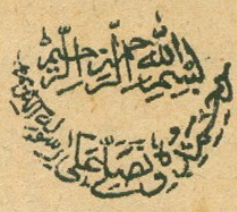 بسم الله الرحمن الرحيم
نحمده و نصلي على رسوله الكريم